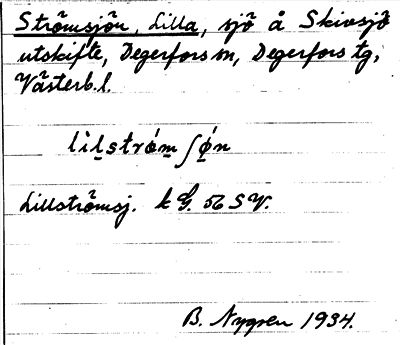 Strömsjön, Lilla, sjö å Skivsjö
utskifte, Degerfors sn, Degerfors tg,
Västerb.l.
Lillströmsj. k G. 56 SV.
B. Nygren 1934.